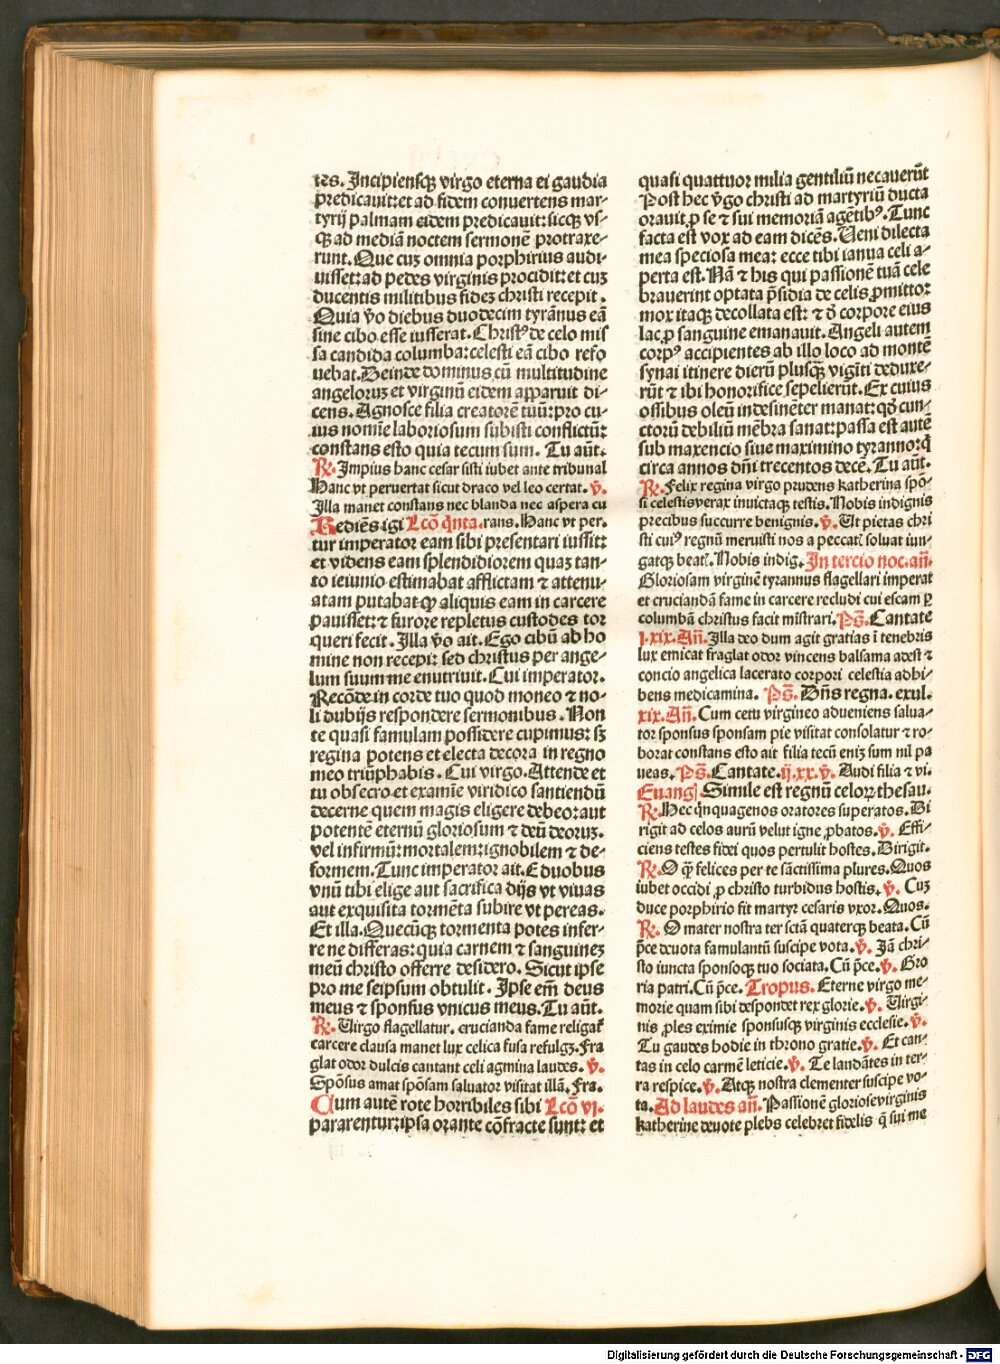 tes. Incipiensqʒ virgo eterna ei gaudia
predicauit:et ad fidem conuertens mar⸗
tyrij palmam eidem predicauit: sicqʒ vs⸗
qʒ ad mediā noctem sermonē protraxe⸗
runt. Que cuʒ omnia porphirius audi⸗
uisset:ad pedes virginis procidit: et cuʒ
ducentis militibus fideʒ christi recepit.
Quia v̄o diebus duodecim tyrānus eā
sine cibo esse iusserat. Christꝰ de celo mis
sa candida columba:celesti eā cibo refo
uebat. Deinde dominus cū multitudine
angeloruʒ et virginū eidem apparuit di⸗
cens. Agnosce filia creatorē tuū: pro cu⸗
ius nomīe laboriosum subisti conflictū:
constans esto quia tecum sum. Tu aūt.
R. Impius hanc cesar sisti iubet ante tribunal
Hanc vt peruertat sicut draco vel leo certat. v̄.
Illa manet constans nec blanda nec aspera cu
Rediēs igi Lcō q̄nta. rans. Hanc vt per.
tur imperator eam sibi presentari iussit:
et videns eam splendidiorem quaʒ tan⸗
to ieiunio estimabat afflictam ⁊ attenu⸗
atam putabat ꝙ aliquis eam in carcere
pauisset: ⁊ furore repletus custodes tor
queri fecit. Illa v̄o ait. Ego cibū ab ho
mine non recepi: sed christus per ange⸗
lum suum me enutriuit. Cui imperator.
Recōde in corde tuo quod moneo ⁊ no⸗
li dubijs respondere sermonibus. Non
te quasi famulam possidere cupimus: sʒ
regina potens et electa decora in regno
meo triūphabis. Cui virgo. Attende et
tu obsecro et examīe viridico santiendū
decerne quem magis eligere debeo: aut
potentē eternū gloriosum ⁊ deū deoruʒ.
vel infirmū: mortalem: ignobilem ⁊ de⸗
formem. Tunc imperator ait. E duobus
vnū tibi elige aut sacrifica dijs vt viuas
aut exquisita tormēta subire vt pereas.
Et illa. Quecūqʒ tormenta potes infer⸗
re ne differas: quia carnem ⁊ sanguineʒ
meū christo offerre desidero. Sicut ipse
pro me seipsum obtulit. Ipse em̄ deus
meus ⁊ sponsus vnicus meus. Tu aūt.
R. Virgo flagellatur. crucianda fame religat̄
carcere clausa manet lux celica fusa refulgʒ. Fra
glat odor dulcis cantant celi agmina laudes. v̄.
Spōsus amat spōsam saluator visitat illā. Fra.
Cum autē rote horribiles sibi Lcō vi.
pararentur: ipsa orante cōfracte sunt: et
quasi quattuor milia gentiliū necauerūt
Post hec v̄go christi ad martyriū ducta
orauit ꝓ se ⁊ sui memoriā agētibꝰ. Tunc
facta est vox ad eam dicēs. Veni dilecta
mea speciosa mea: ecce tibi ianua celi a⸗
perta est. Nā ⁊ his qui passionē tuā cele
brauerint optata p̄sidia de celis ꝓmitto:
mox itaqʒ decollata est: ⁊ d̄ corpore eius
lac ꝓ sanguine emanauit. Angeli autem
corpꝰ accipientes ab illo loco ad montē
synai itinere dierū plusqʒ viginti deduxe⸗
rūt ⁊ ibi honorifice sepelierūt. Ex cuius
ossibus oleū indesinēter manat: qd̄ cun⸗
ctorū debiliū mēbra sanat: passa est autē
sub maxencio siue maximino tyranno: q̄
circa annos dn̄i trecentos decē. Tu aūt.
R. Felix regina virgo prudens katherina spō⸗
si celestis verax inuictaqʒ testis. Nobis indignis
precibus succurre benignis. v̄. Ut pietas chri
sti cuiꝰ regnū meruisti nos a peccat̄ soluat iun⸗
gatqʒ beat̄. Nobis indig. In tercio noc. an̄.
Gloriosam virginē tyrannus flagellari imperat
et cruciandā fame in carcere recludi cui escam ꝑ
columbā christus facit mīstrari. Ps̄. Cantate
j. xix. An̄. Illa deo dum agit gratias ī tenebris
lux emicat fraglat odor vincens balsama adest ⁊
concio angelica lacerato corpori celestia adhi⸗
bens medicamina. Ps̄. Dn̄s regna. exul.
xix. An̄. Cum cetu virgineo adueniens salua⸗
tor sponsus sponsam pie visitat consolatur ⁊ ro⸗
borat constans esto ait filia tecū eniʒ sum nil pa
ueas. Ps̄. Cantate. ij. xx. v̄. Audi filia ⁊ vi.
Euangl̄ Simile est regnū celoꝝ thesau.
R. Hec q̄nquagenos oratores superatos. Di
rigit ad celos aurū velut igne ꝓbatos. v̄. Effi⸗
ciens testes fidei quos pertulit hostes. Dirigit.
R. O q̄ felices per te sāctissima plures. Quos
iubet occidi ꝓ christo turbidus hostis. v̄. Cuʒ
duce porphirio fit martyr cesaris vxor. Quos.
R. O mater nostra ter sctā quaterqʒ beata. Cū
p̄ce deuota famulantū suscipe vota. v̄. Jā chri⸗
sto iuncta sponsoqʒ tuo sociata. Cū p̄ce. v̄. Glo
ria patri. Cū p̄ce. Tropus. Eterne virgo me⸗
morie quam sibi despondet rex glorie. v̄. Virgi⸗
nis ꝓles eximie sponsusqʒ virginis ecclesie. v̄.
Tu gaudes hodie in throno gratie. v̄. Et can⸗
tas in celo carmē leticie. v̄. Te laudātes in ter⸗
ra respice. v̄. Atqʒ nostra clementer suscipe vo⸗
ta. Ad laudes an̄. Passionē gloriose virginis
katherine deuote plebs celebret fidelis q̄ sui me
Digitalisierung gefördert durch die Deutsche Forschungsgemeinschaft - DFG